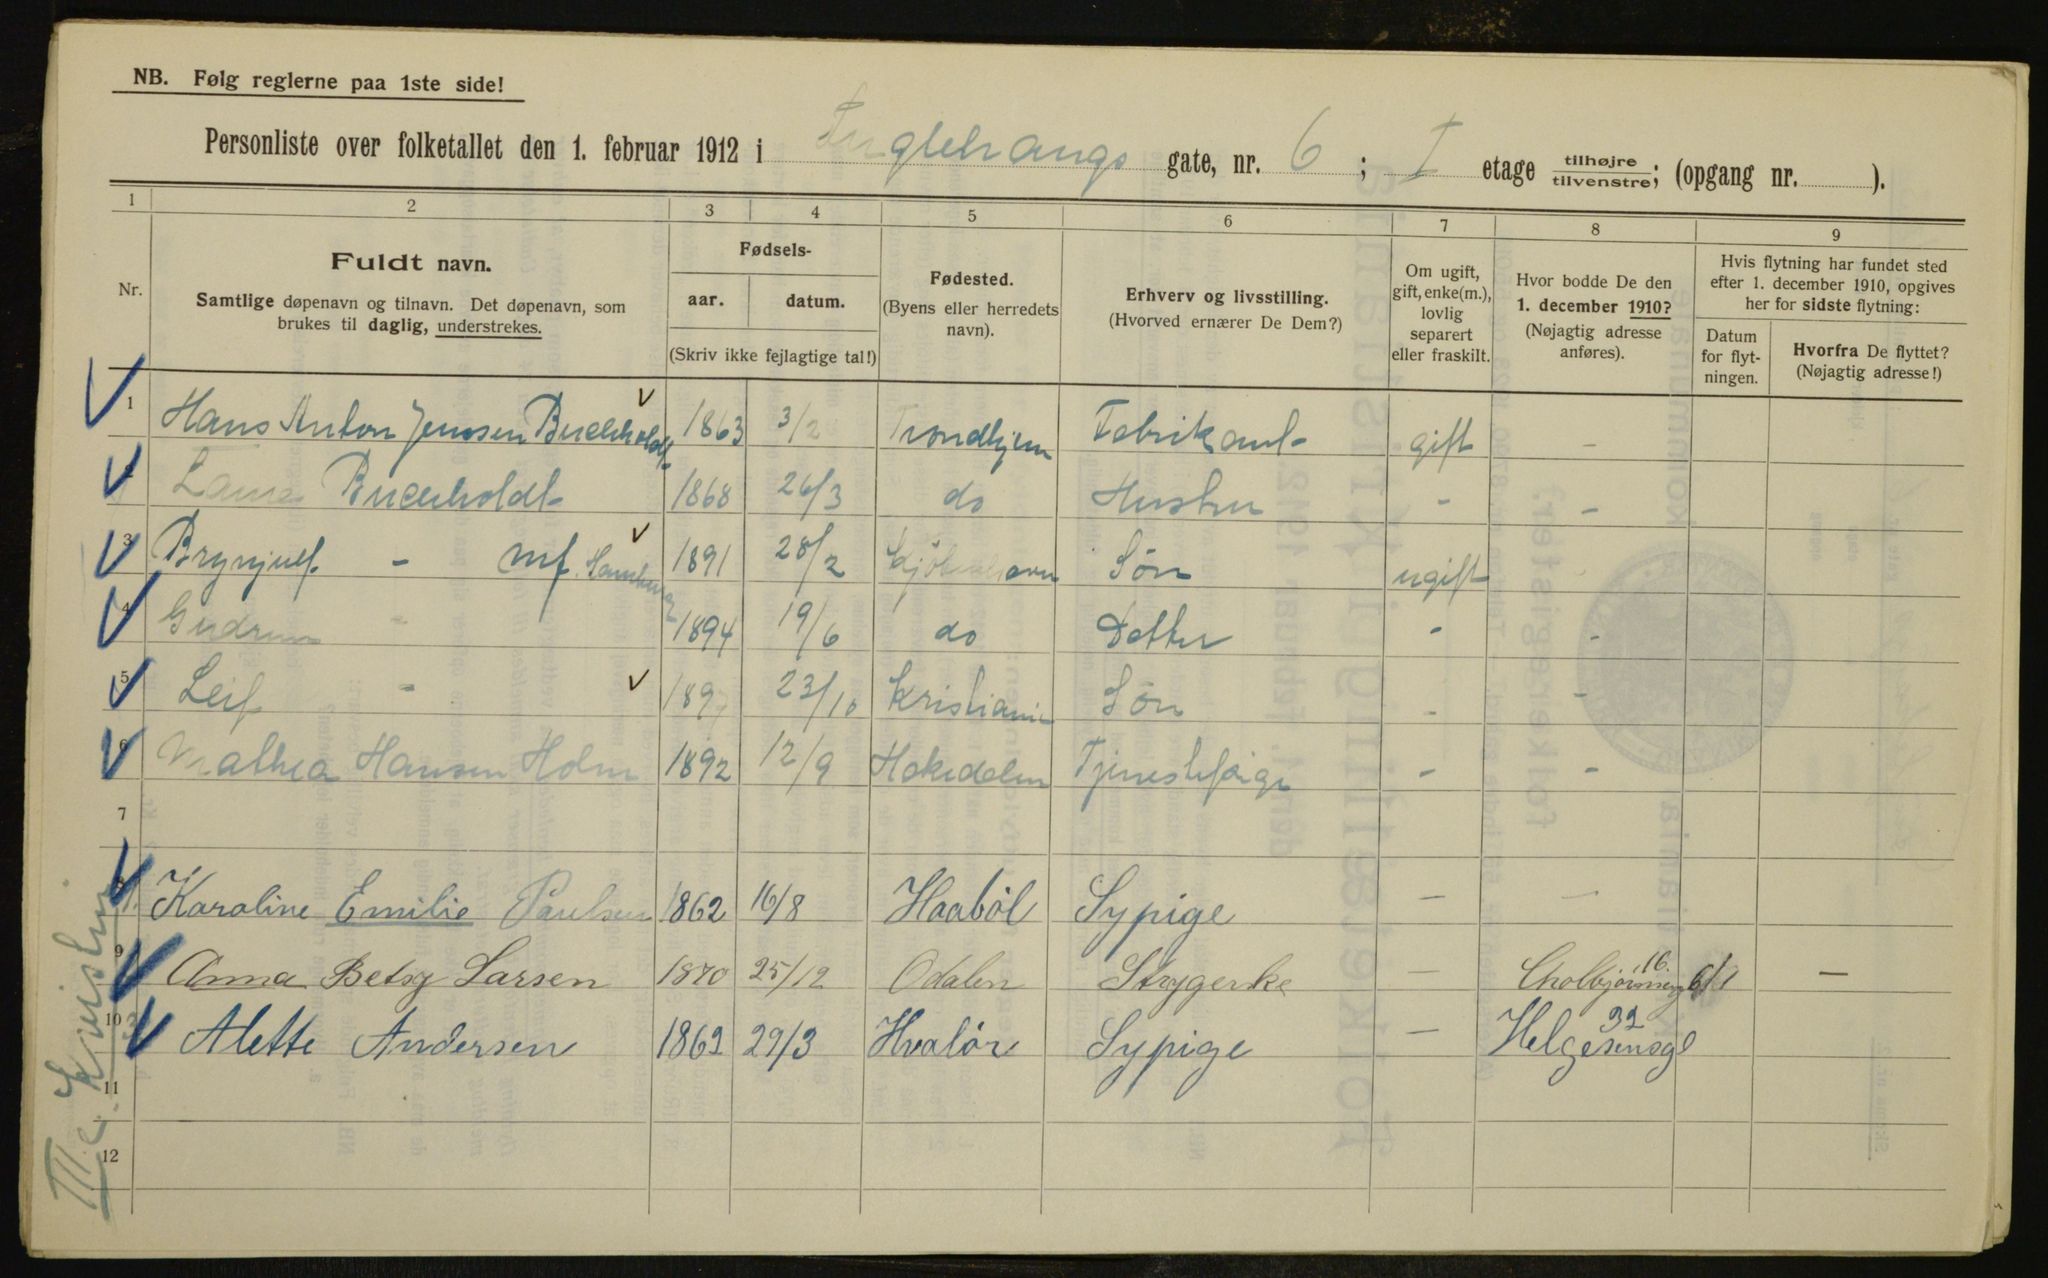 NB. Følg reglerne paa 1ste side!
Personliste over folketallet den 1. februar 1912 i Fuglehaugs gate, nr. 6 ; I etage tilhøjre/tilvenstre; (opgang nr. ).
1 2 3 4 5 6 7 8 9
Nr.
Fuldt navn.
Samtlige døpenavn og tilnavn. Det døpenavn, som
brukes til daglig, understrekes.
Fødsels-
aar. datum.
(Skriv ikke fejlagtige tal!)
Fødested.
(Byens eller herredets
navn).
Erhverv og livsstilling.
(Hvorved ernærer De Dem?)
Om ugift,
gift, enke(m.),
lovlig
separert
eller fraskilt.
Hvor bodde De den
1. december 1910?
(Nøjagtig adresse
anføres).
Hvis flytning har fundet sted
efter 1. december 1910, opgives
her for sidste flytning:
Datum
for flyt-
ningen.
Hvorfra De flyttet?
(Nøjagtig adresse!)
1 Hans Anton Jenssen Buchholdt 1863 3/2 Trondhjem Fabrikant gift -
2 Buchholdt 1868 26/3 do Hustru - -
3 Brynjulf - mf. 1891 28/2 Kjøbenhavn Søn ugift
4 Gudrun - 1894 19/6 do Datter - -
5 Leif - 1897 23/10 Kristiania Søn - -
6 Mathea Hansen Holm 1892 12/9 Hakedalen Tjenestepige - -
7
8 Karoline Emilie Paulsen 1862 16/8 Haabøl Sypige - -
9 Anna Betsy Larsen 1870 25/12 Odalen Strygerske - 16. 6/1 -
10 Alette Andersen 1862 29/3 Hvalør Sypige - Helgesensgt 32
11
12
III. Kvisten